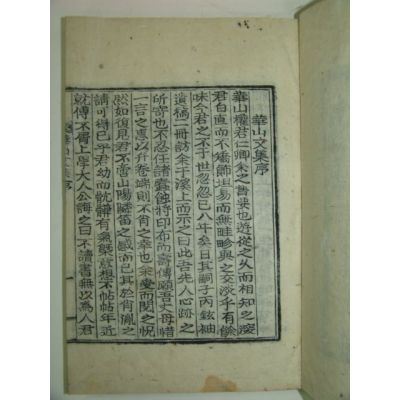 華山文集序
華山權君仁卿余之舊契也遊從之久而相知之深
君自直而不矯飾坦易而無畦畛與之交淡乎有餘
味今君之不于世忽忽已八年矣日其嗣子丙鉉袖
遺稿二冊訪余于溪上而示之曰此吾先人心跡之
所寄也不忍任諸蠹蝕將印布而壽傳願吾丈毋惜
一言之惠以弁卷端則不肖之幸也余受而閱之怳
然如復見君不啻山陽隣笛之感而已其於肯胤之
請可得已乎君幼而骯髒有氣槩意想不帖帖年近
就傅不屑上學大人公誨之曰不讀書無以爲人君